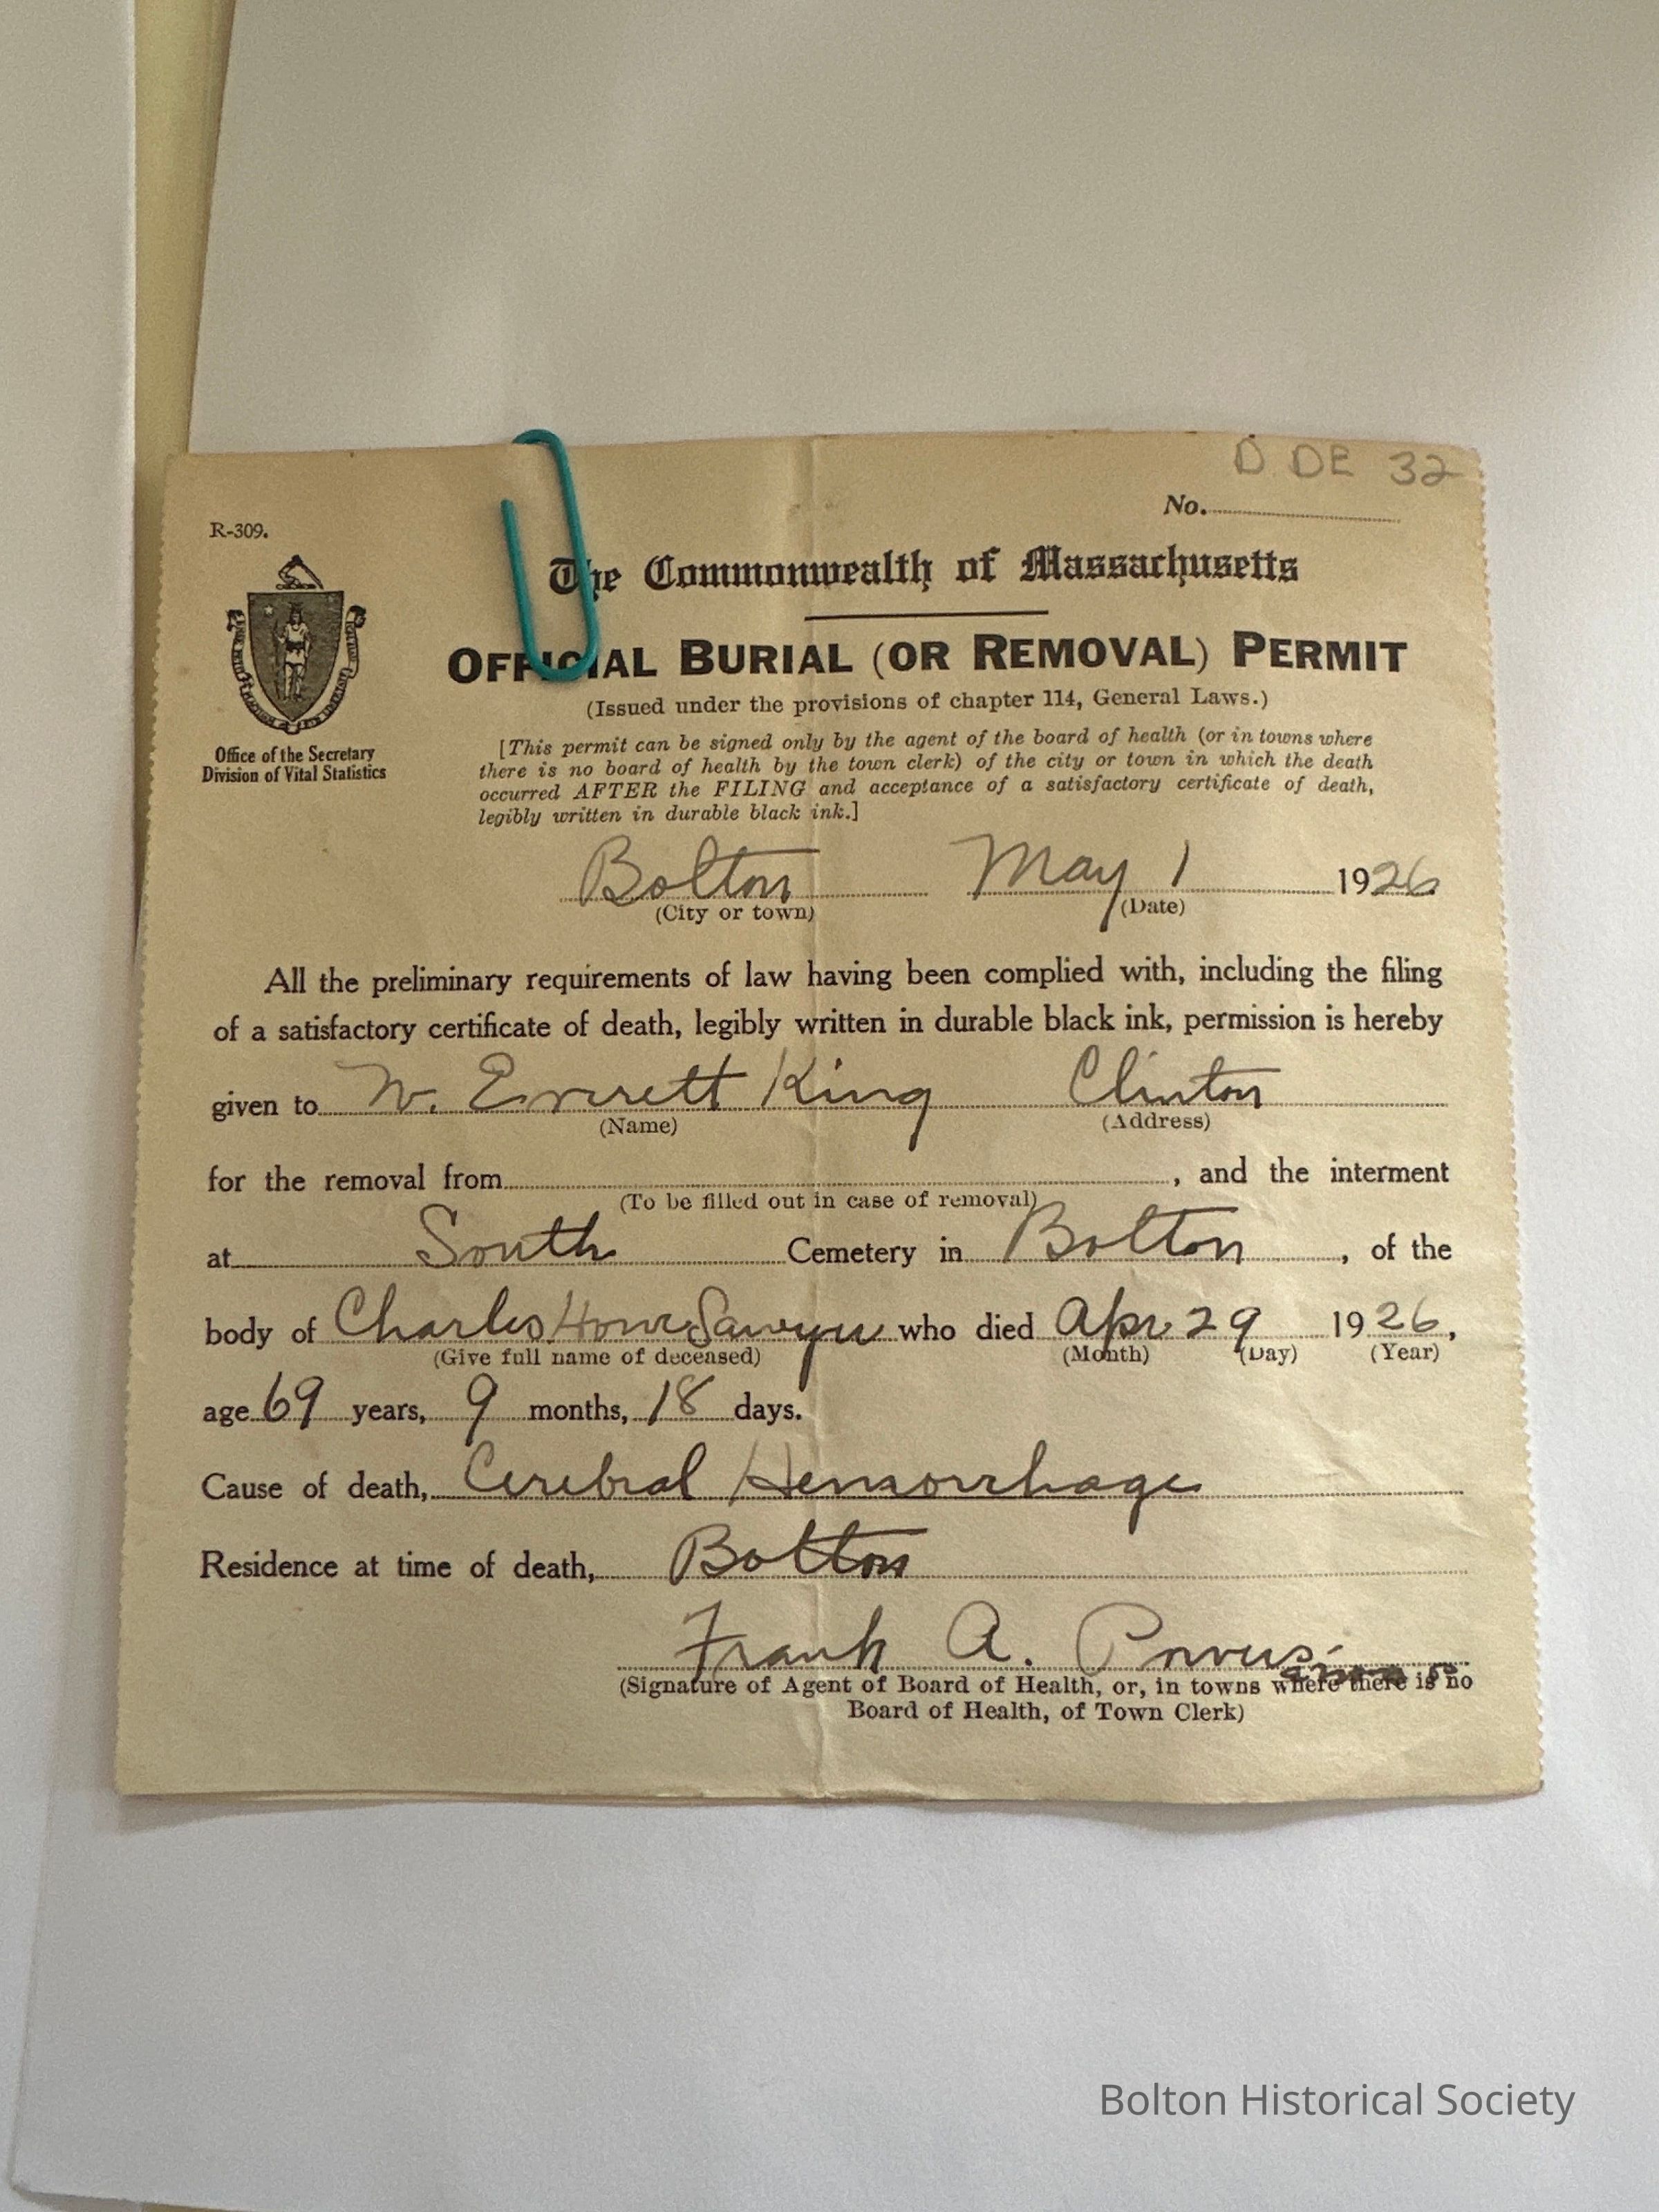 D DE 32
No.
R-309.
The Commonwealth of Massachusetts
OFFICIAL BURIAL (OR REMOVAL) PERMIT
(Issued under the provisions of chapter 114, General Laws.)
Office of the Secretary
Division of Vital Statistics
[This permit can be signed only by the agent of the board of health (or in towns where
there is no board of health by the town clerk) of the city or town in which the death
occurred AFTER the FILING and acceptance of a satisfactory certificate of death,
legibly written in durable black ink.]
Bolton May 1 1926
(City or town) (Date)
All the preliminary requirements of law having been complied with, including the filing
of a satisfactory certificate of death, legibly written in durable black ink, permission is hereby
given to W. Everett King Clinton
(Name) (Address)
for the removal from , and the interment
(To be filled out in case of removal)
at South Cemetery in Bolton , of the
body of Charles Howe Sawyer who died Apr 29 1926,
(Give full name of deceased) (Month) (Day) (Year)
age 69 years, 9 months, 18 days.
Cause of death, Cerebral Hemorrhage
Residence at time of death, Bolton
Frank A. Powers
(Signature of Agent of Board of Health, or, in towns where there is no
Board of Health, of Town Clerk)
Bolton Historical Society